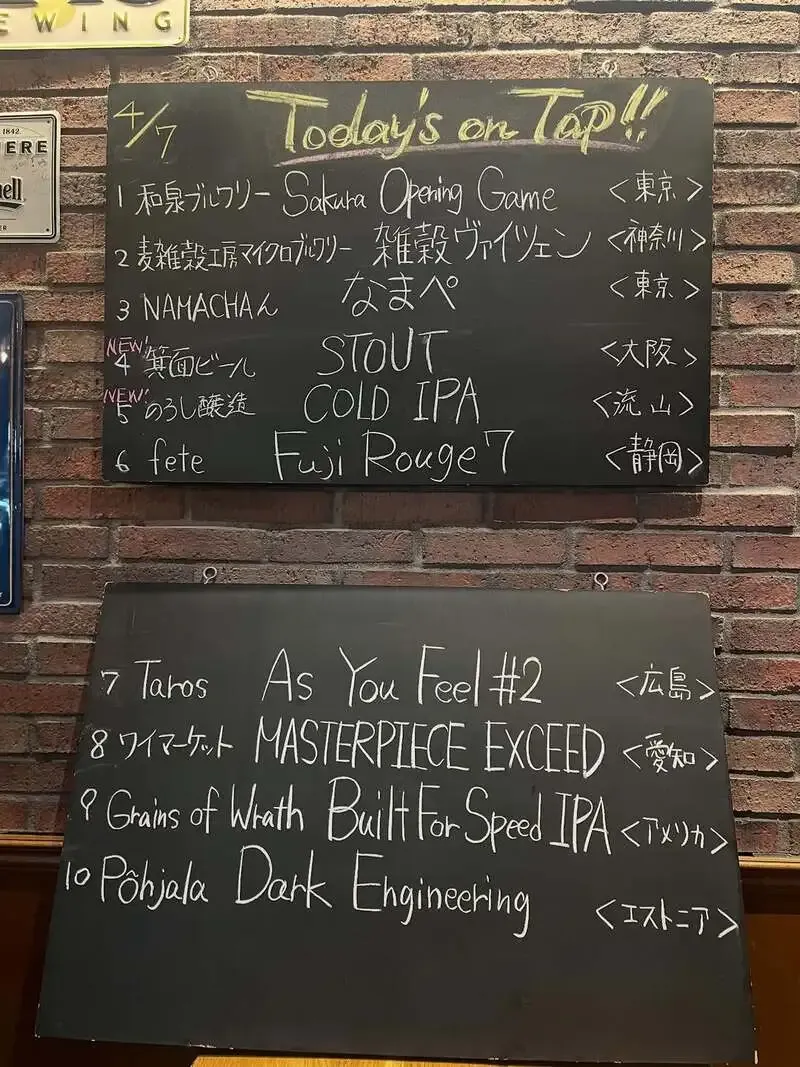 EWING
1842
ERE
ell
4/7 Today's on Tap!!
1 和泉ブルワリー Sakura Opening Game <東京>
2 麦雑穀工房マイクロブルワリー 雑穀ヴァイツェン <神奈川>
3 NAMACHAん なまぺ <東京>
NEW!
4 箕面ビール STOUT <大阪>
NEW!
5 のろし醸造 COLD IPA <流山>
6 fete Fuji Rouge 7 <静岡>
7 Taros As You Feel #2 <広島>
8 ワイマーケット MASTERPIECE EXCEED <愛知>
9 Grains of Wrath Built For Speed IPA <アメリカ>
10 Põhjala Dark Engineering <エストニア>